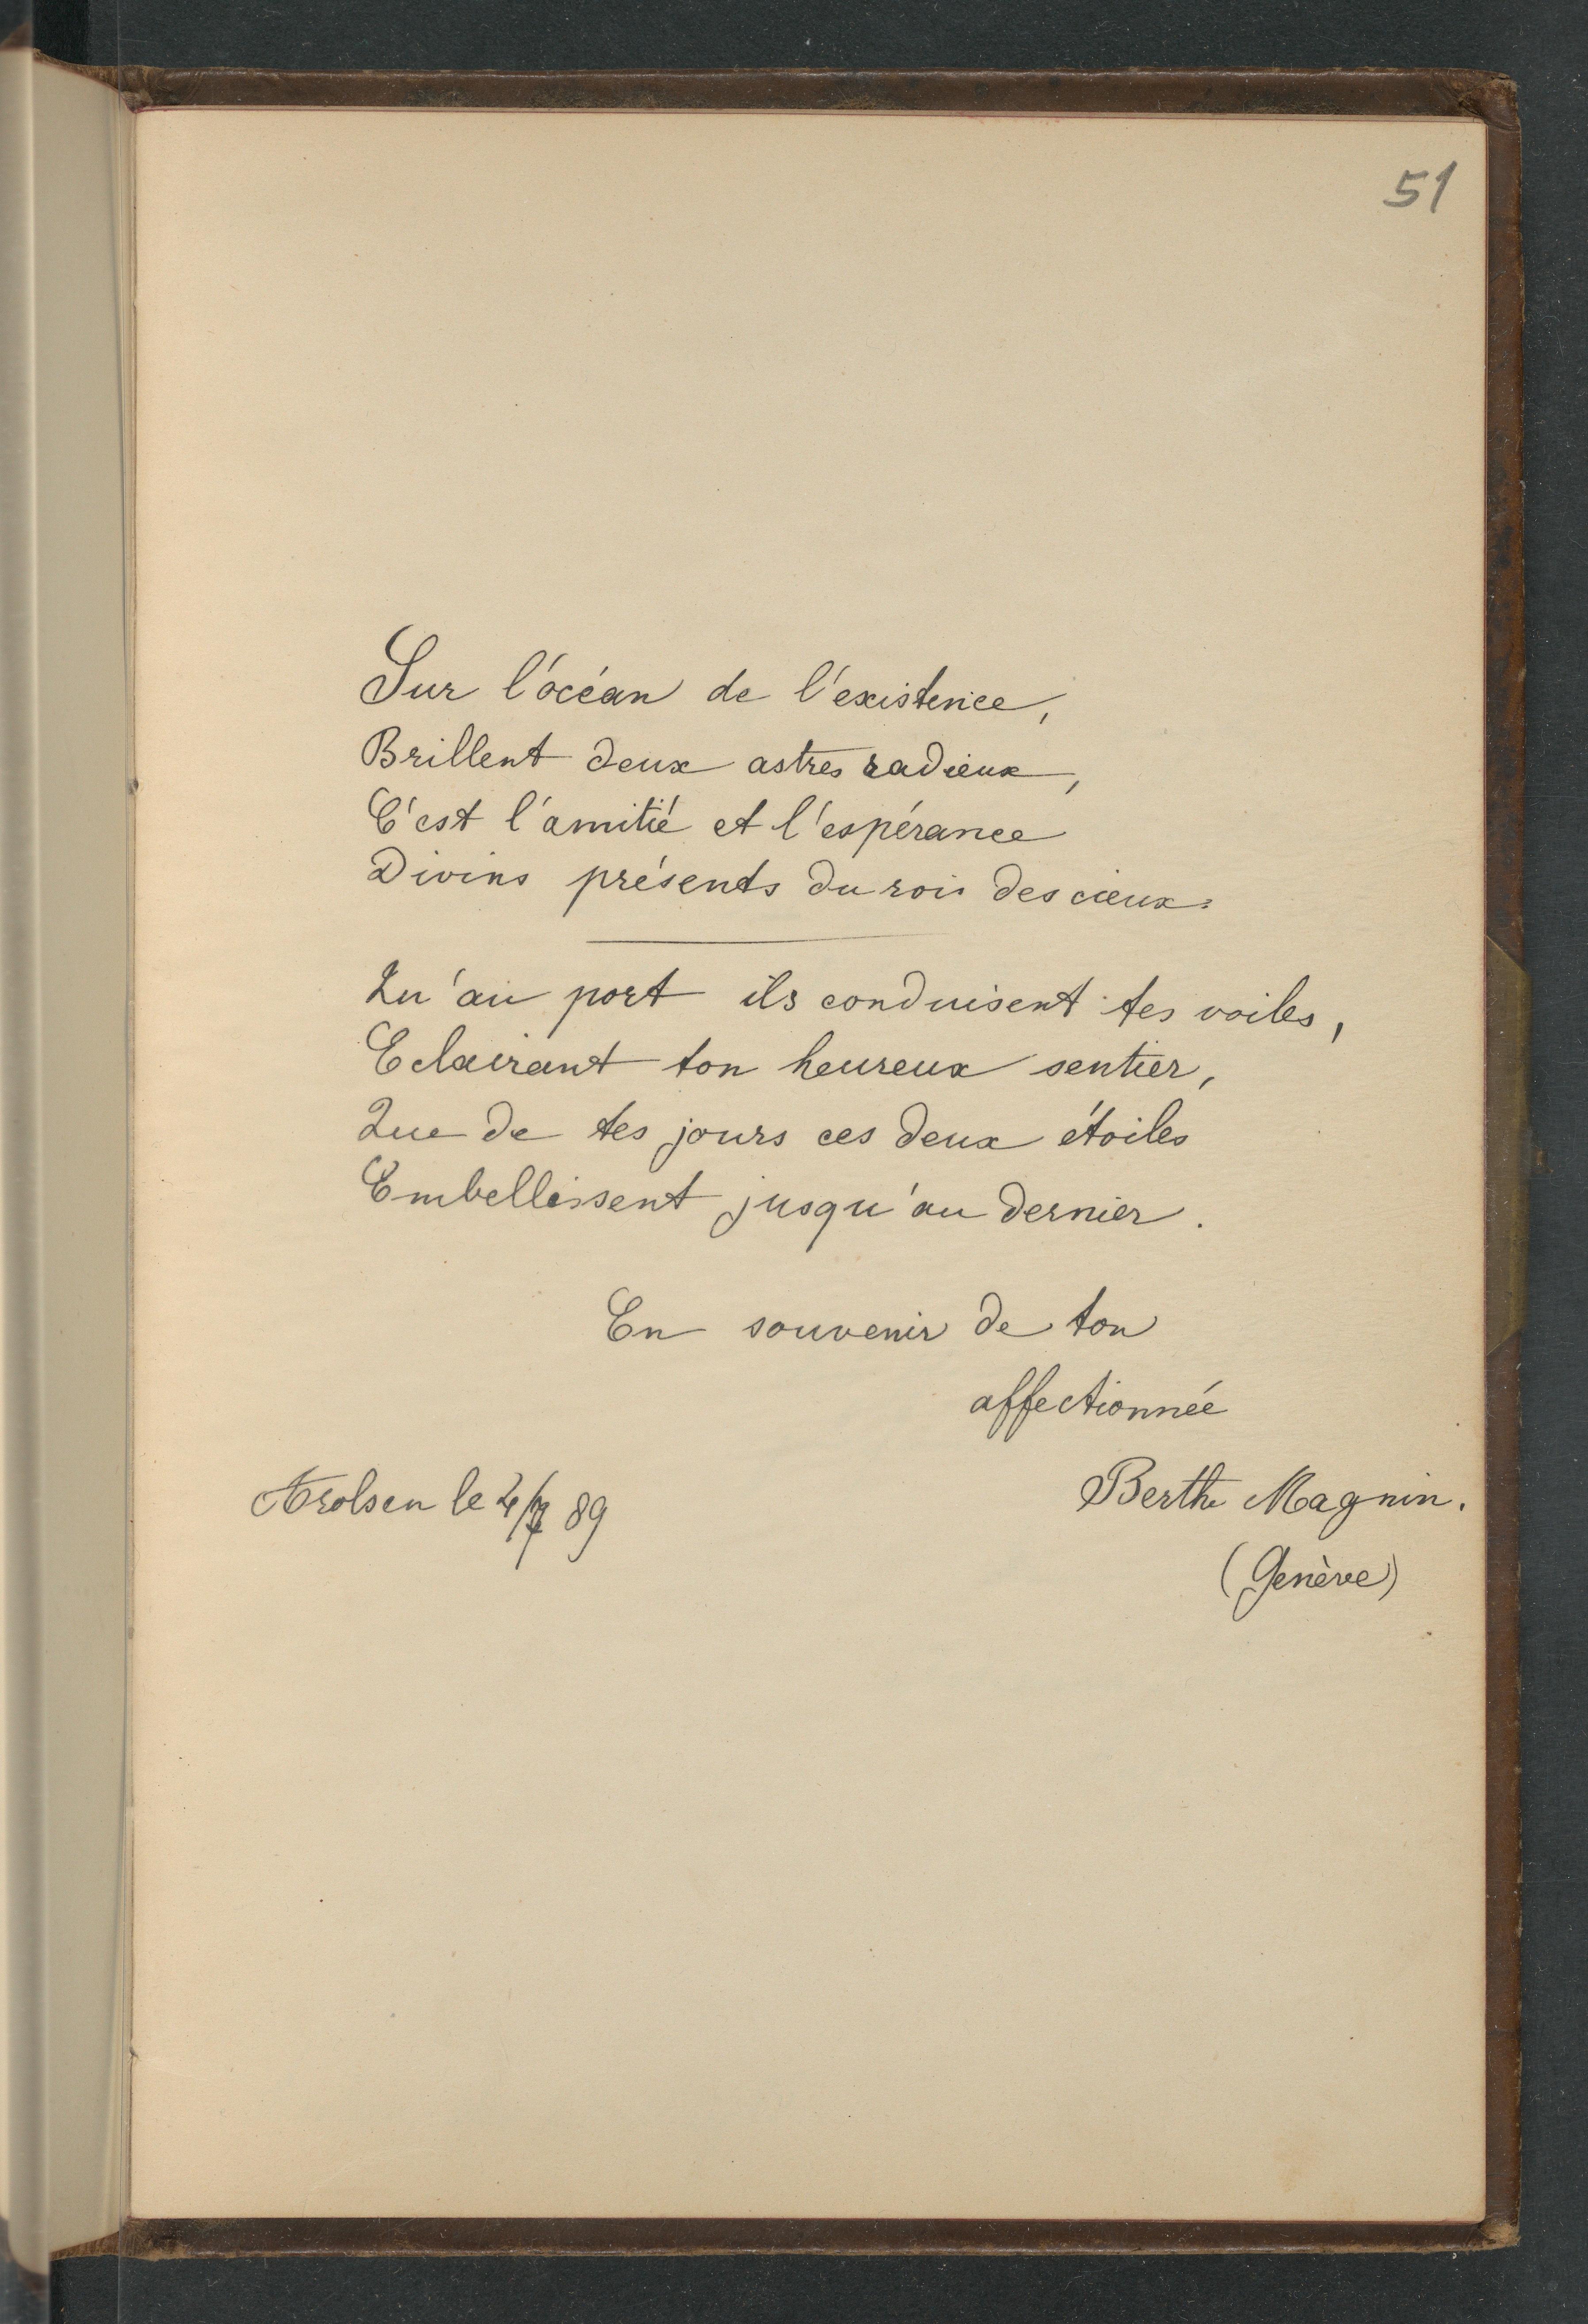 51
Sur l'océan de l'existence,
Brillent deux astres radieux,
C'est l'amitié et l'espérance
Divins présents du roi des cieux.
Qu'au port ils conduisent tes voiles,
Eclairant ton heureux sentier,
Que de tes jours ces deux étoiles
Embellissent jusqu'au dernier.
En souvenir de ton
affectionnée
Berthe Magnin.
Arolsen le 89
(Genève)